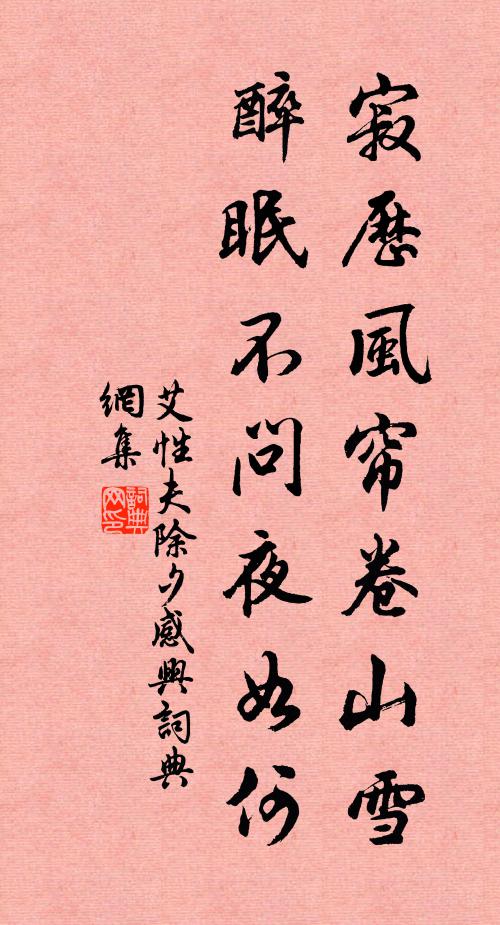 寂歷風帘卷山雪
醉眠不問夜如何
艾性夫除夕感興詞典
網集
詞典
网印